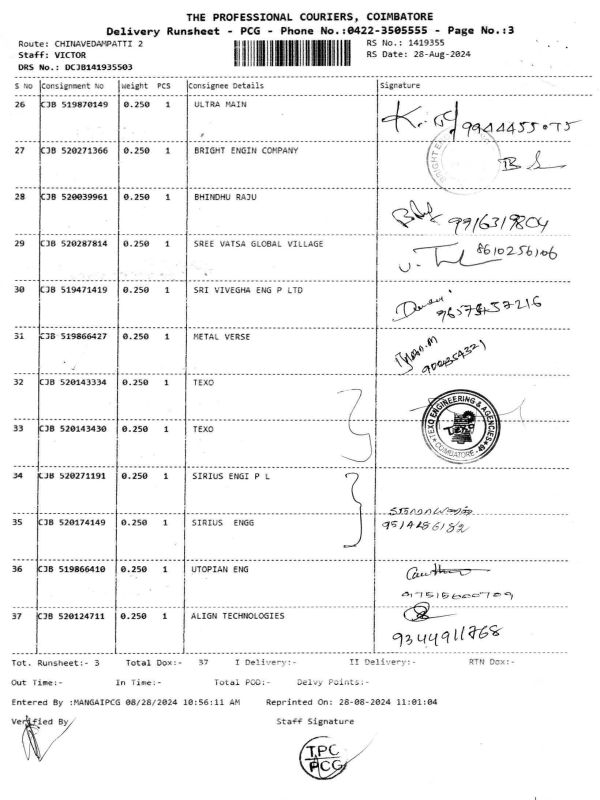 THE PROFESSIONAL COURIERS, COIMBATORE
Delivery Runsheet - PCG - Phone No.:0422-3505555 - Page No.:3
Route: CHINAVEDAMPATTI 2 RS No.: 1419355
Staff: VICTOR RS Date: 28-Aug-2024
DRS No.: DCJB141935503
S No Consignment No Weight PCS Consignee Details Signature
26 CJB 519870149 0.250 1 ULTRA MAIN 9944455075
27 CJB 520271366 0.250 1 BRIGHT ENGIN COMPANY
28 CJB 520039961 0.250 1 BHINDHU RAJU 9916319804
29 CJB 520287814 0.250 1 SREE VATSA GLOBAL VILLAGE 8610256106
30 CJB 519471419 0.250 1 SRI VIVEGHA ENG P LTD
31 CJB 519866427 0.250 1 METAL VERSE
32 CJB 520143334 0.250 1 TEXO
TEXO ENGINEERING & AGENCIES
COIMBATORE - 49
33 CJB 520143430 0.250 1 TEXO
34 CJB 520271191 0.250 1 SIRIUS ENGI P L
35 CJB 520174149 0.250 1 SIRIUS ENGG 9514286182
36 CJB 519866410 0.250 1 UTOPIAN ENG
37 CJB 520124711 0.250 1 ALIGN TECHNOLOGIES 9344911768
Tot. Runsheet:- 3 Total Dox:- 37 I Delivery:- II Delivery:- RTN Dox:-
Out Time:- In Time:- Total POD:- Delvy Points:-
Entered By :MANGAIPCG 08/28/2024 10:56:11 AM Reprinted On: 28-08-2024 11:01:04
Verified By Staff Signature
TPC
PCG